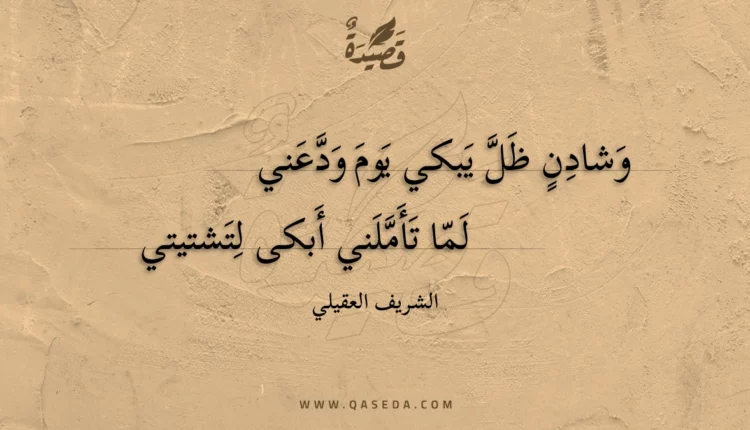 قَصِيْدَةٌ
وَشادِنٍ ظَلَّ يَبكي يَومَ وَدَّعَني
لَمّا تَأَمَّلَني أَبكى لِتَشتيتي
الشريف العقيلي
WWW.QASEDA.COM